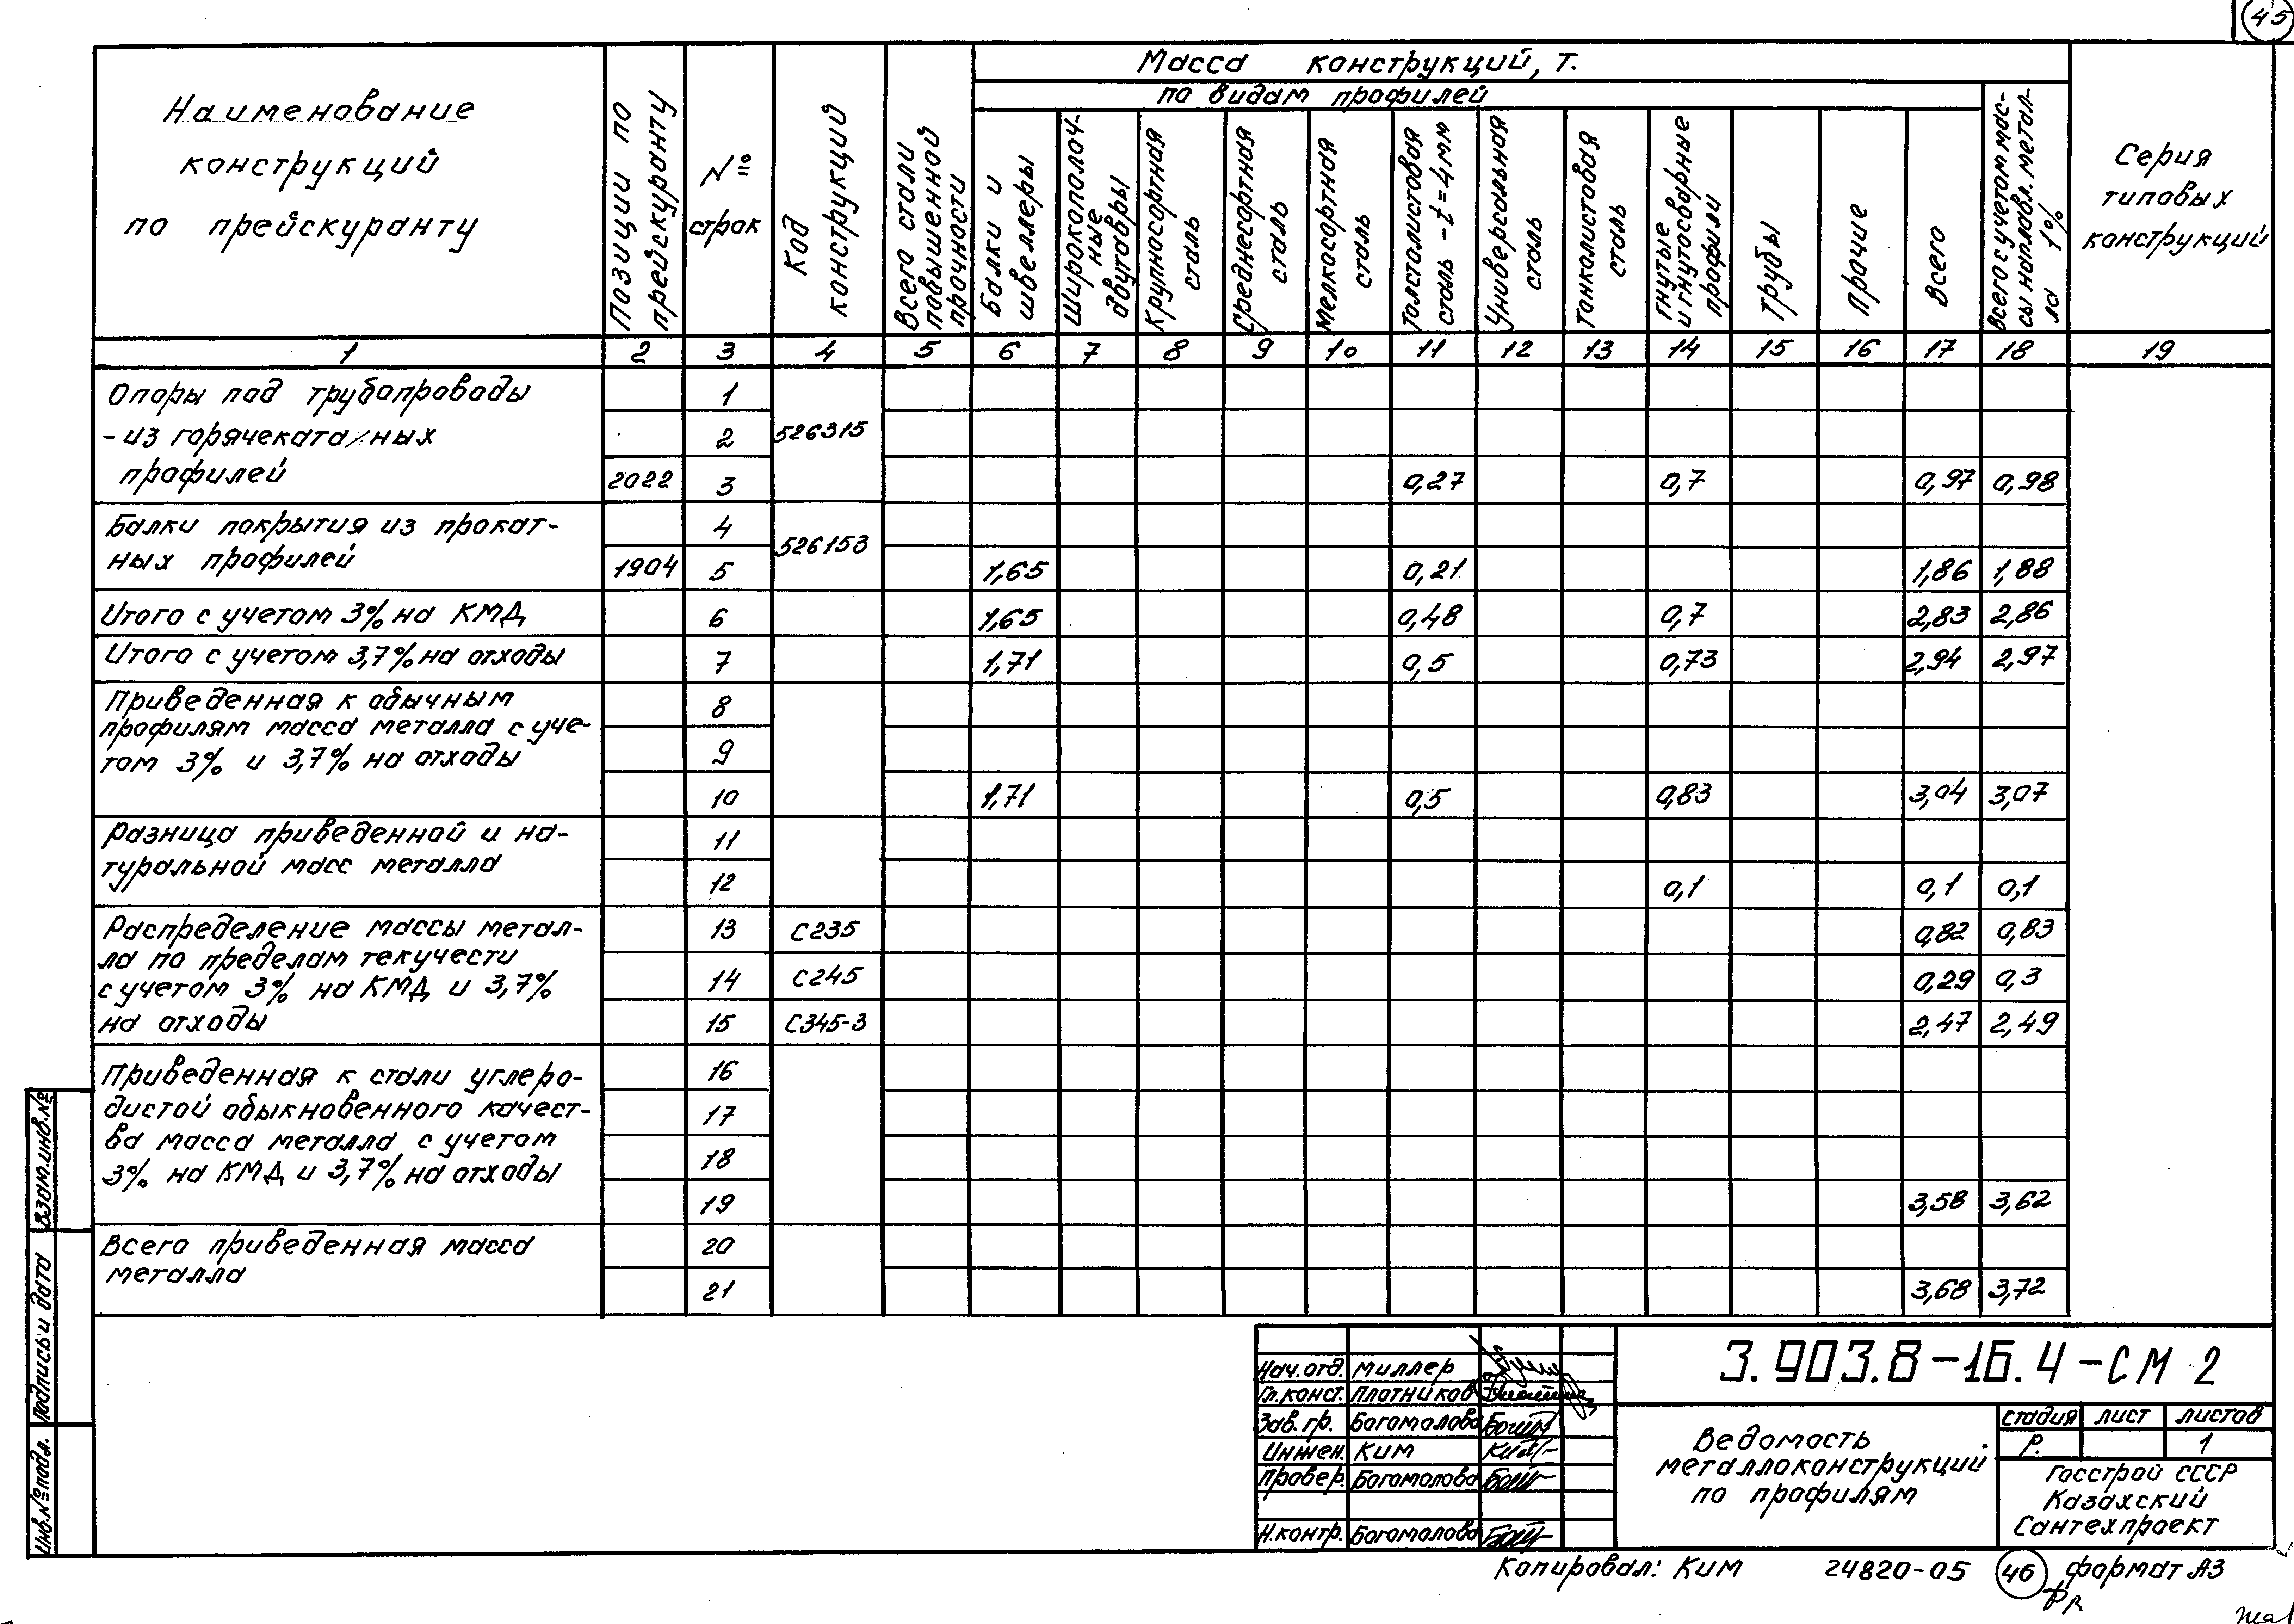 45
Наименование
конструкций
по прейскуранту
Позиции по
прейскуранту
№
строк
Код
конструкций
Всего стали
повышенной
прочности
Масса конструкций, т.
по видам профилей
Балки и
швеллеры
Широкополоч-
ные
двутавры
Крупносортная
сталь
Среднесортная
сталь
Мелкосортная
сталь
Толстолистовая
сталь - t=4мм
Универсальная
сталь
Тонколистовая
сталь
Гнутые
и гнутосварные
профили
Трубы
Прочие
Всего
Всего с учетом мас-
сы наплавл. метал-
ла 1%
Серия
типовых
конструкций
1 2 3 4 5 6 7 8 9 10 11 12 13 14 15 16 17 18 19
Опоры под трубопроводы
- из горячекатаных
профилей
1
2 526315
2022 3 0,27 0,7 0,97 0,98
Балки покрытия из прокат-
ных профилей
4
526153
1904 5 1,65 0,21 1,86 1,88
Итого с учетом 3% на КМД 6 1,65 0,48 0,7 2,83 2,86
Итого с учетом 3,7% на отходы 7 1,71 0,5 0,73 2,94 2,97
Приведенная к обычным
профилям масса металла с уче-
том 3% и 3,7% на отходы
8
9
10 1,71 0,5 0,83 3,04 3,07
Разница приведенной и на-
туральной масс металла
11
12 0,1 0,1 0,1
Распределение массы метал-
ла по пределам текучести
с учетом 3% на КМД и 3,7%
на отходы
13 С235 0,82 0,83
14 С245 0,29 0,3
15 С345-3 2,47 2,49
Приведенная к стали углеро-
дистой обыкновенного качест-
ва масса металла с учетом
3% на КМД и 3,7% на отходы
16
17
18
19 3,58 3,62
Всего приведенная масса
металла
20
21 3,68 3,72
Взам.инв.№
Подпись и дата
Инв.№подл.
Нач.отд. Миллер
Гл.конст. Плотников
Зав.гр. Богомолова
Инжен. Ким
Провер. Богомолова
Н.контр. Богомолова
3.903.8-16.4-СМ 2
Ведомость
металлоконструкций
по профилям
стадия лист листов
Р. 1
Госстрой СССР
Казахский
Сантехпроект
Копировал: Ким 24820-05 46 формат А3